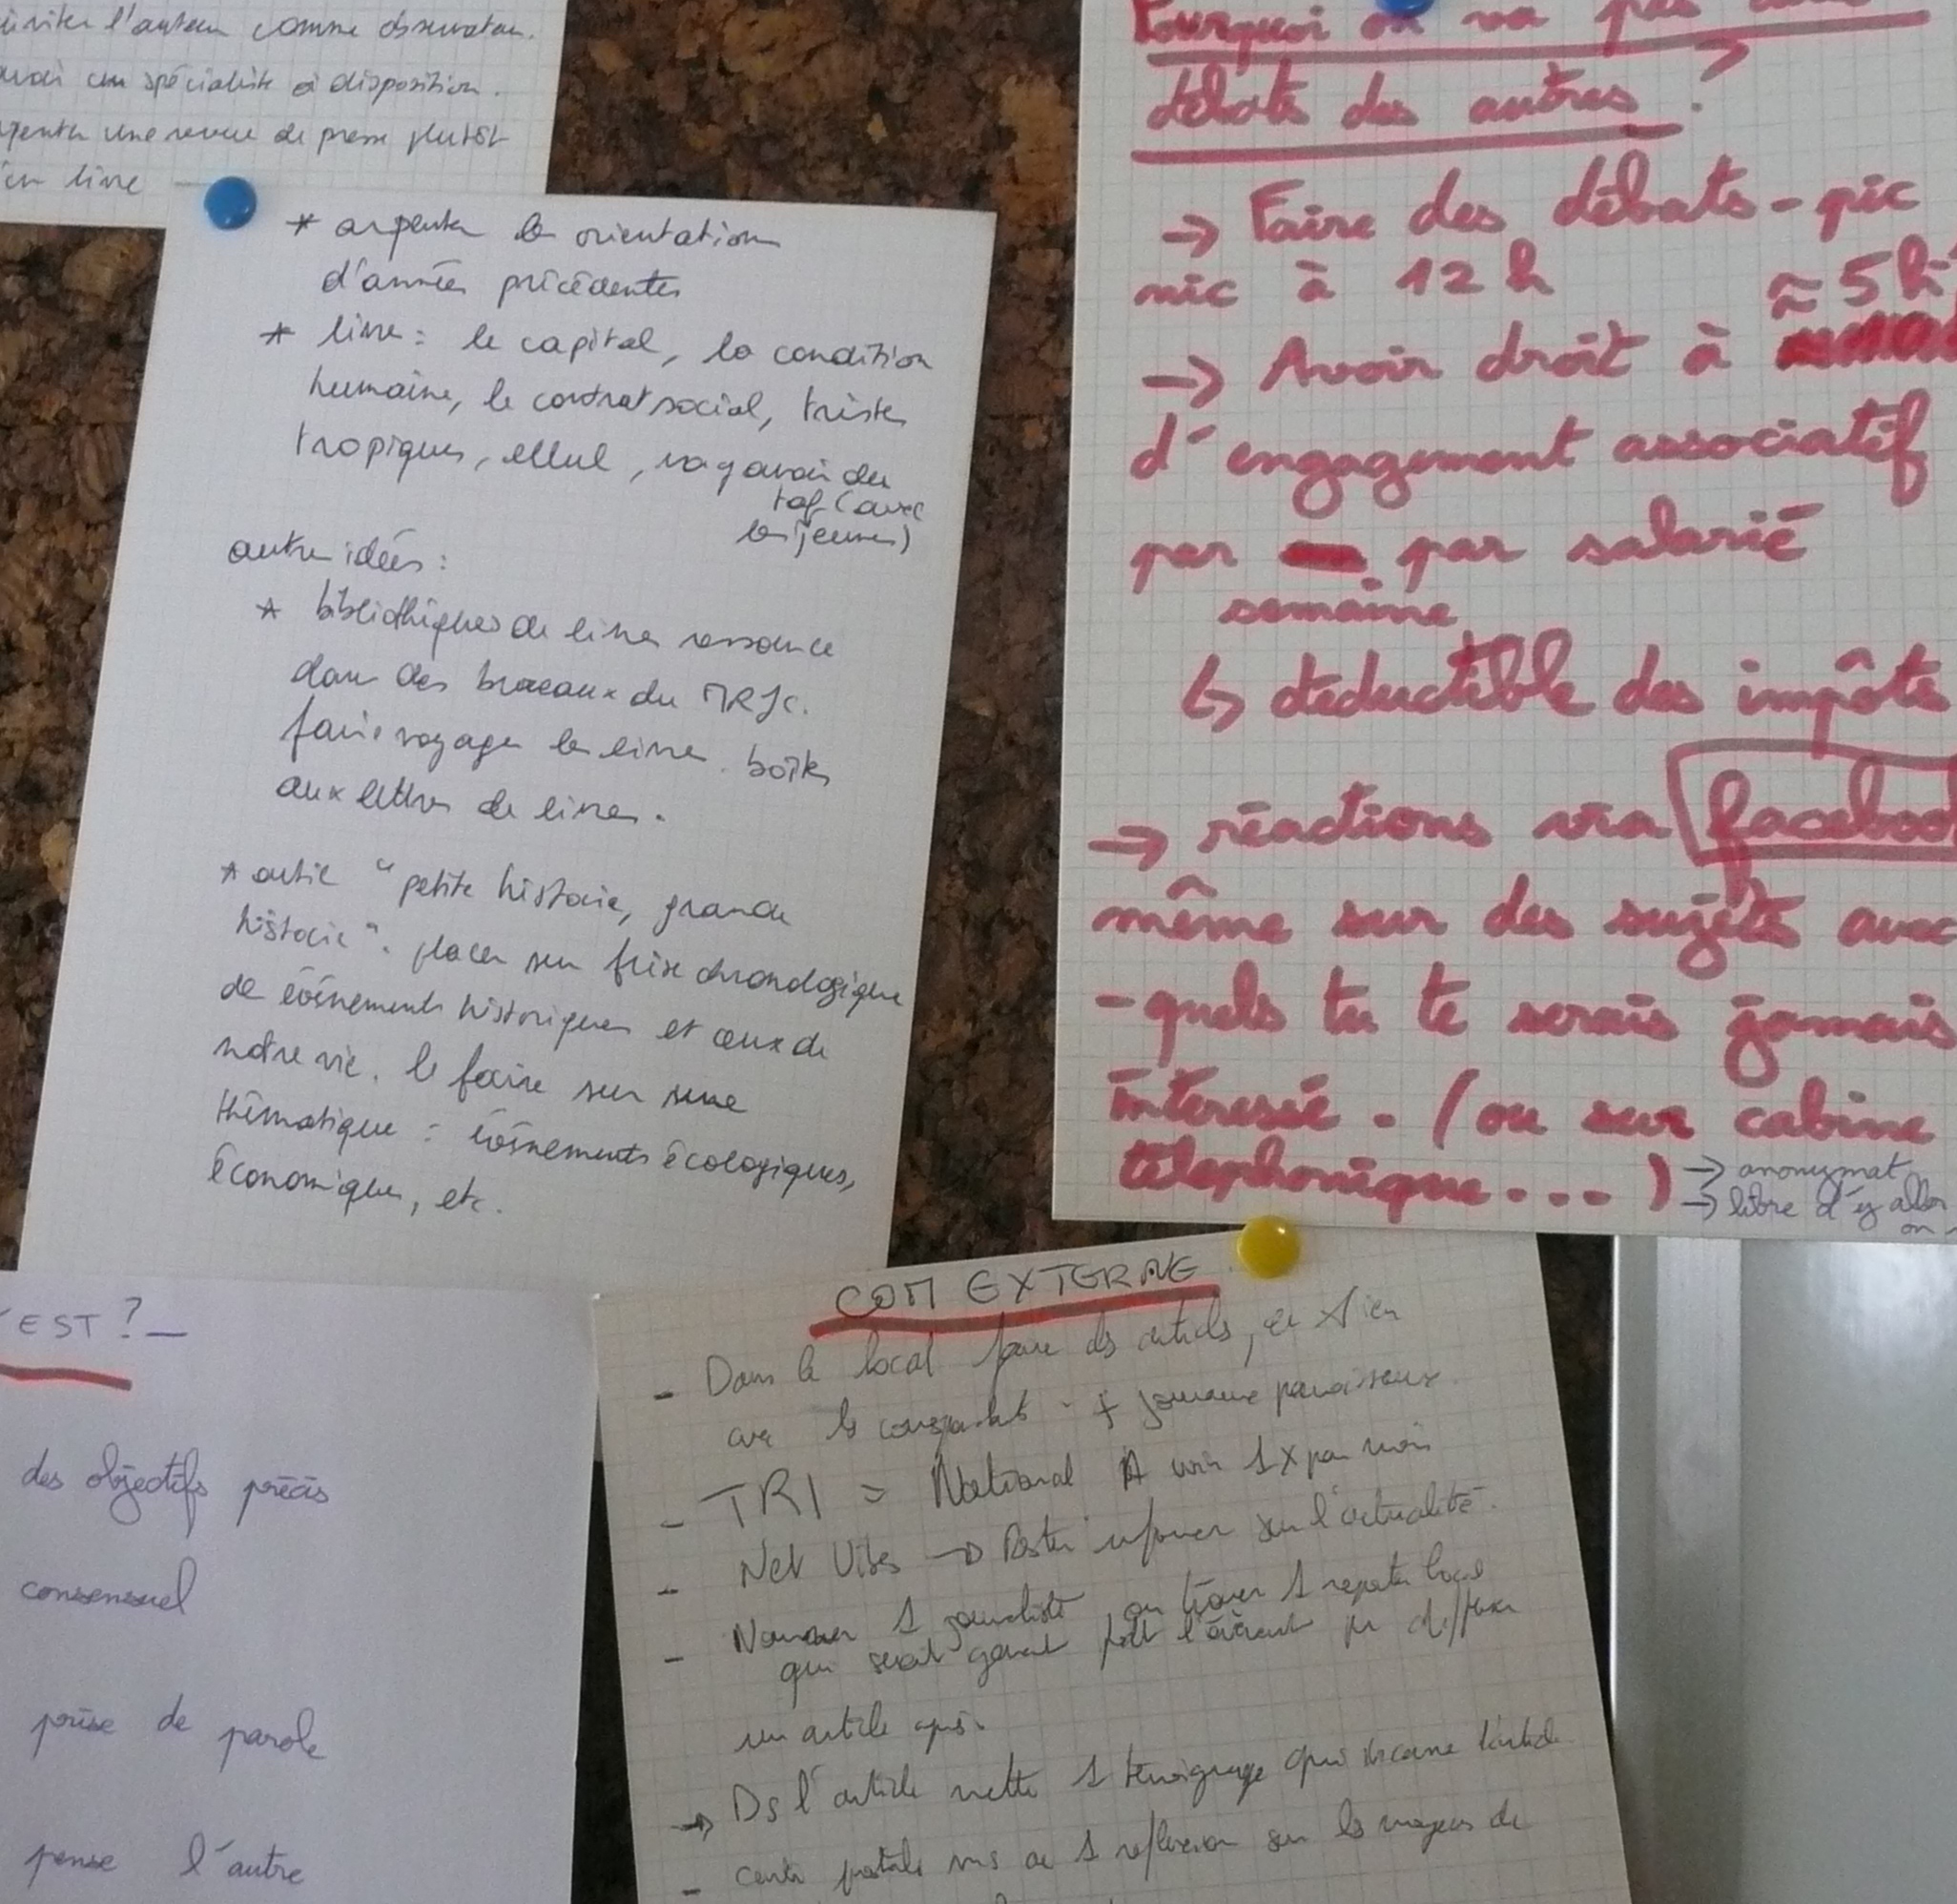 inviter l'auteur comme observateur.
avoir un spécialiste à disposition.
une revue de presse plutôt
livre
* arpenter les orientations
d'années précédentes
* livre : le capital, la condition
humaine, le contrat social, tristes
tropiques, ellul, va y avoir du
taf (avec
les jeunes)
autres idées :
* bibliothèques de livres ressource
dans des bureaux du MRJC.
faire voyager les livres. boîtes
aux lettres de livres.
* outil "petite histoire, grande
histoire". placer sur frise chronologique
de évènements historiques et ceux de
notre vie. le faire sur une
thématique : évènements écologiques,
économiques, etc.
Pourquoi on va pas
débats des autres ?
→ Faire des débats - pic
nic à 12 h
≈ 5 h
→ Avoir droit à
d'engagement associatif
par par salarié
semaine
↳ déductible des impôts
→ réactions via facebook
même sur des sujets avec
-quels tu te serais jamais
interessé. (ou sur cabine
télephonique...) → anonymat
→ libre d'y aller
on
EST ? _
des objectifs précis
consensuel
prise de parole
pense l'autre
COM EXTERNE
- Dans le local faire des articles, en lien
avec les correspondants + journaux paroissiaux.
- TRI = National A voir 1 x par mois
- Net Vibes → Rester informer sur l'actualité.
- Nommer 1 journaliste ou trouver 1 reporter local
qui serait garant pdt l'évènement pr diffuser
un article après.
→ Ds l'article mettre 1 témoignage qui incarne l'article
- carte postale ms 1 reflexion sur les moyens de